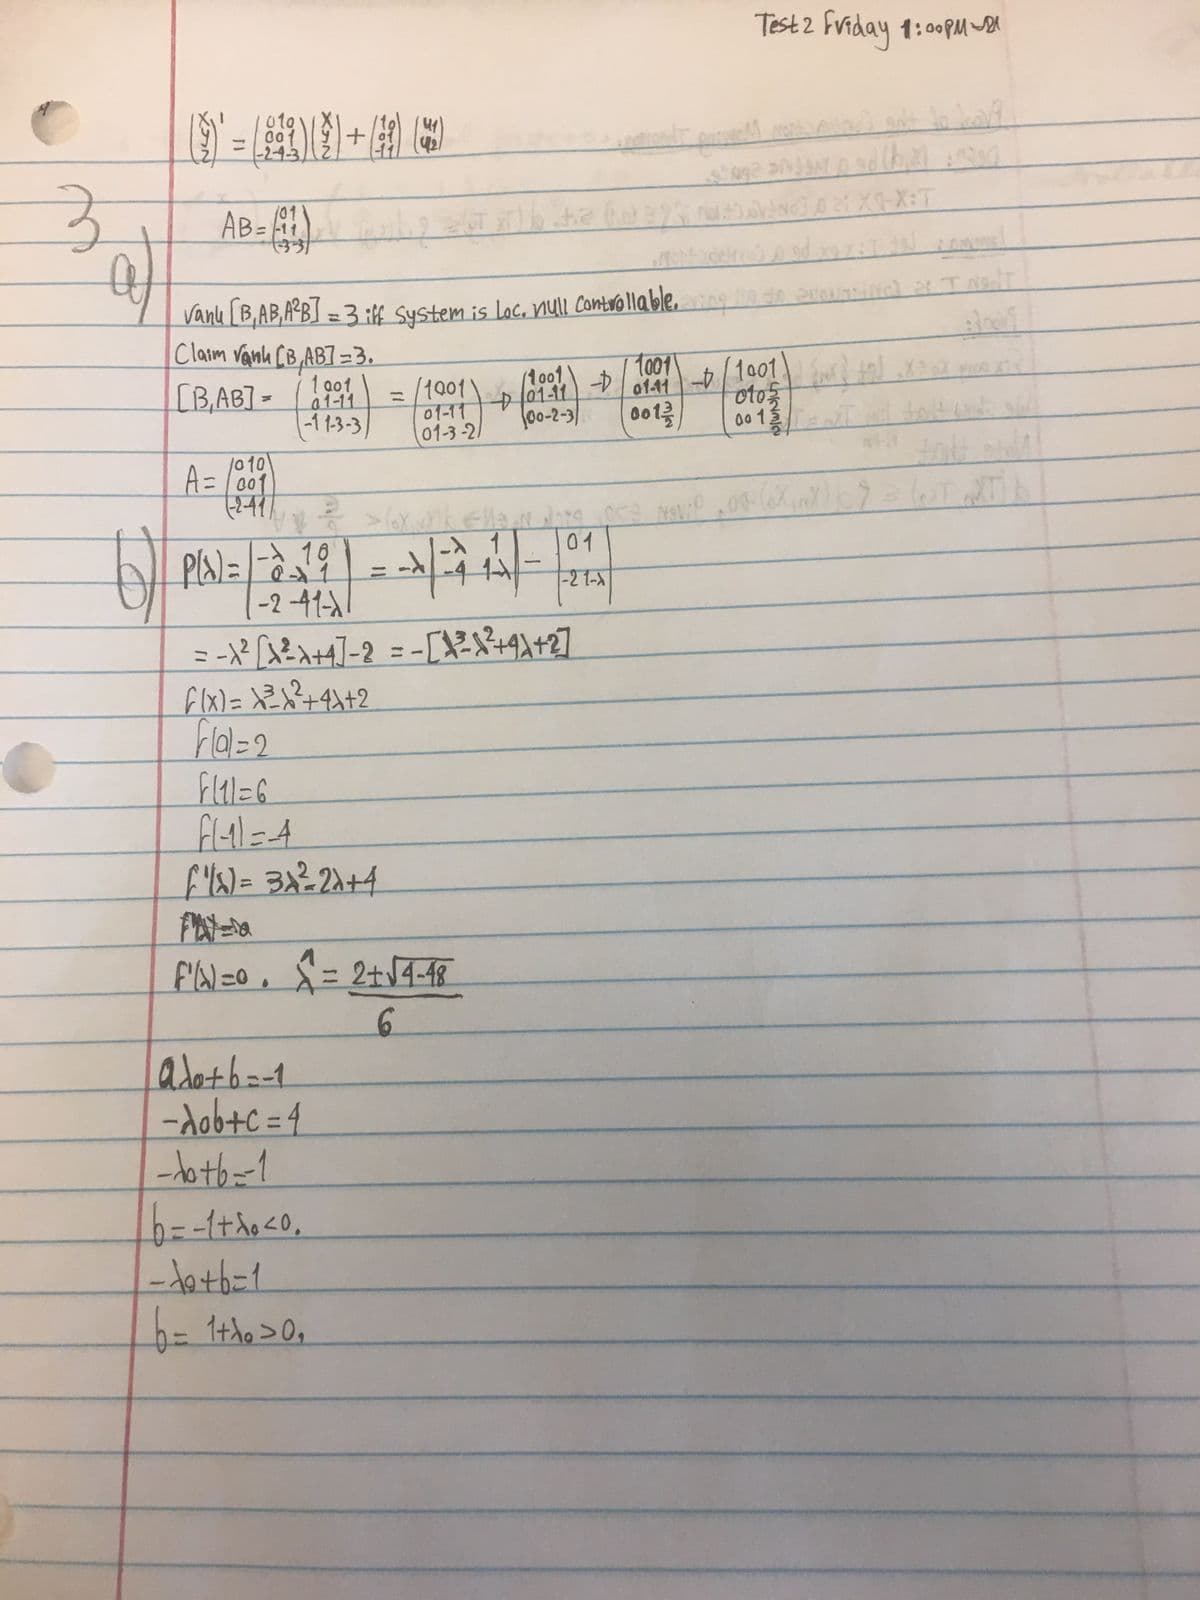 Test 2 Friday 1:00PM
(x y z)' = (010 001 -2-4-3)(x y z) + (10 01 -11)(u1 u2)
3
AB = (01 -11 -3-3)
a)
rank [B,AB,A²B] = 3 iff system is Loc. null Controllable.
Claim rank [B,AB] = 3.
[B,AB] = (1001 01-11 -11-3-3) = (1001 01-11 01-3-2) → (1001 01-11 00-2-3) → (1001 01-11 001 3/2) → (1001 010 5/2 001 3/2)
A = (010 001 -2-41)
b) P(λ) = |-λ 1 0 0 -λ 1 -2 -4 1-λ| = -λ|-λ 1 -4 1-λ| - |0 1 -2 1-λ|
= -λ² [λ²-λ+4]-2 = -[λ³-λ²+4λ+2]
f(x) = λ³-λ²+4λ+2
f(0)=2
f(1)=6
f(-1)=-4
f'(λ) = 3λ²-2λ+4
f'(λ)=0. λ = 2±√4-48
6
aλ0+b=-1
-λ0b+c=4
-λ0+b=-1
b=-1+λ0<0.
-λ0+b=1
b= 1+λ0>0,